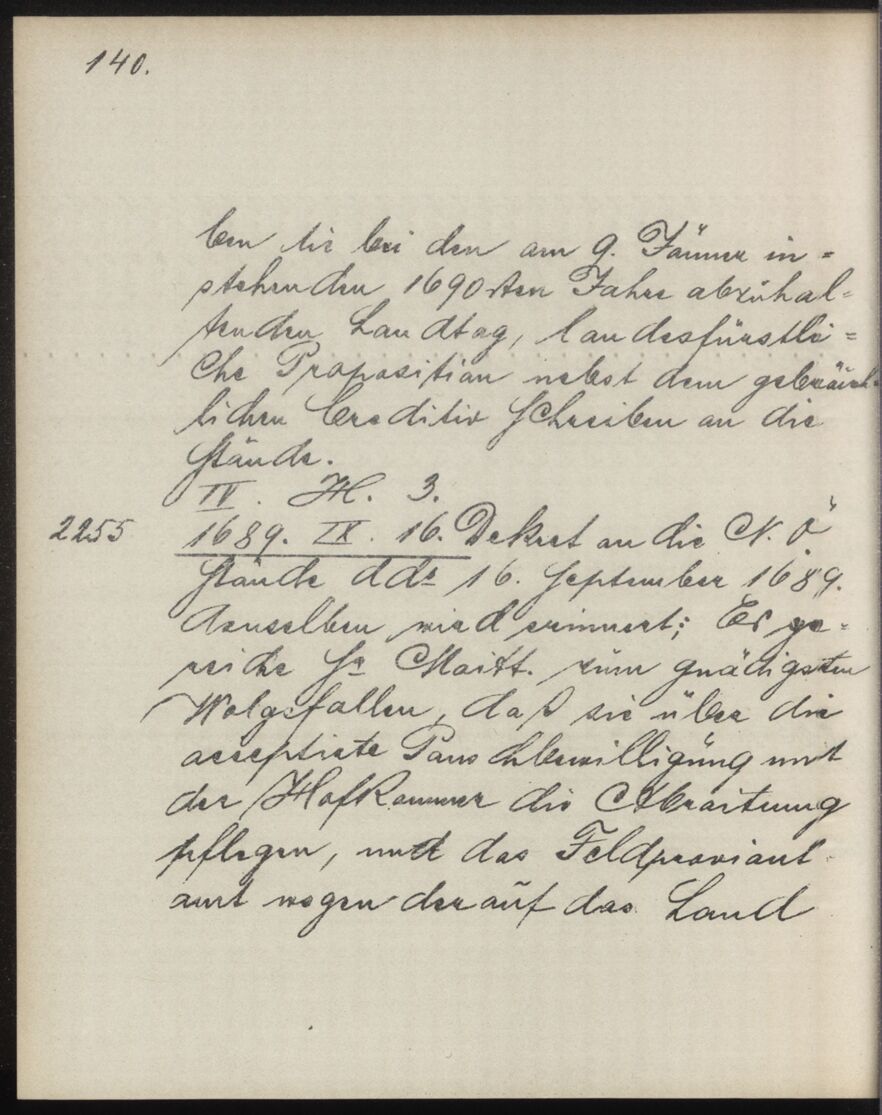 140.
ben die bei den am 9. Jänner in=
stehenden 1690sten Jahre abzuhal=
tenden Landtag, landesfürstli=
che Proposition nebst dem gebräuch=
lichen Creditiv Schreiben an die
Stände.
IV. H. 3.
2255 1689. IX. 16. Dekret an die N. Ö.
Stände ddo 16. September 1689.
denselben wird erinnert; Es ge=
reiche Sr Maitt. zum gnädigsten
Wolgefallen, daß sie über die
acceptirte Pauschbewilligung mit
der Hofkammer die Abraitung
pflegen, und das Feldproviant
amt wegen der auf das Land